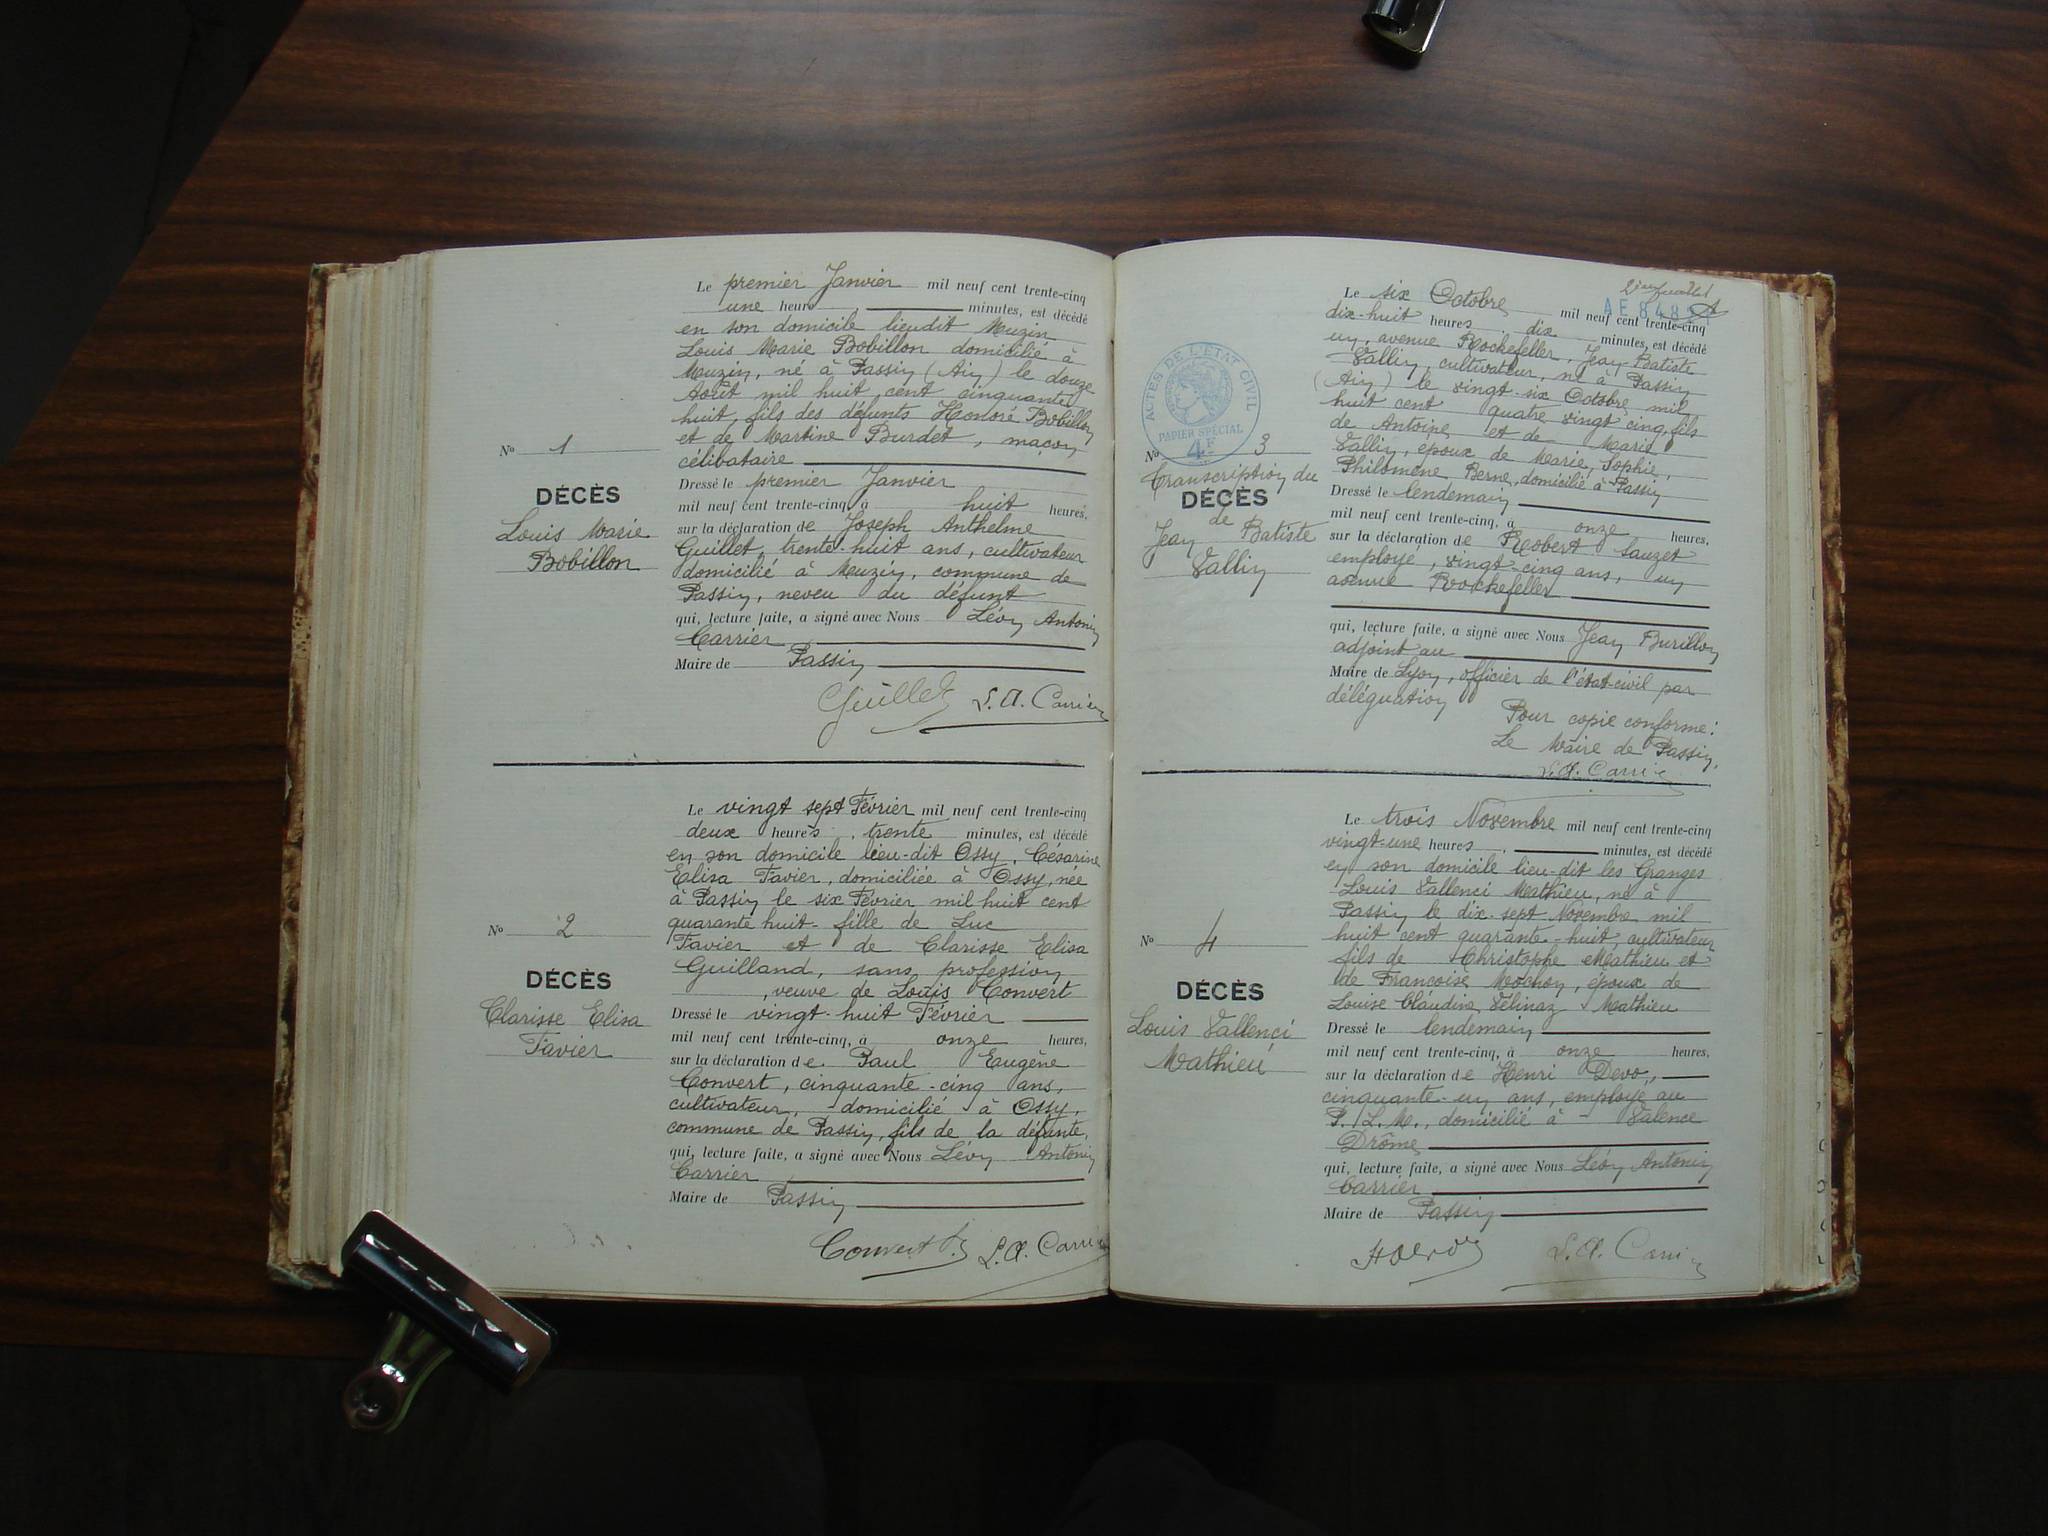 Le premier Janvier mil neuf cent trente-cinq
une heure , minutes, est décédé
en son domicile lieudit Muzin
Louis Marie Bobillon domicilié à
Muzin, né à Passin (Ain) le douze
Août mil huit cent cinquante
huit, fils des défunts Honoré Bobillon
et de Martine Burdet, maçon,
célibataire
No 1
DÉCÈS
Louis Marie
Bobillon
Dressé le premier Janvier
mil neuf cent trente-cinq, à huit heures,
sur la déclaration de Joseph Anthelme
Guillet, trente-huit ans, cultivateur
domicilié à Muzin, commune de
Passin, neveu du défunt
qui, lecture faite, a signé avec Nous Lévy Antonin
Carrier
Maire de Passin
Guillet L. A. Carrier
Le vingt sept Février mil neuf cent trente-cinq
deux heures , trente minutes, est décédé
en son domicile lieu-dit Ossy, Césarine
Elisa Favier, domiciliée à Ossy, née
à Passin le six Février mil huit cent
quarante huit- fille de Luc
Favier et de Clarisse Elisa
Guilland, sans profession
, veuve de Louis Convert
No 2
DÉCÈS
Clarisse Elisa
Favier
Dressé le vingt-huit Février
mil neuf cent trente-cinq, à onze heures,
sur la déclaration de Paul Eugène
Convert, cinquante-cinq ans,
cultivateur, domicilié à Ossy,
commune de Passin, fils de la défunte,
qui, lecture faite, a signé avec Nous Lévy Antonin
Carrier
Maire de Passin
Convert P. L. A. Carrier
2ème feuillet
AE 848
Le six Octobre mil neuf cent trente-cinq
dix-huit heures , dix minutes, est décédé
un, avenue Rockefeller, Jean-Batiste
Vallin, cultivateur, né à Passin
(Ain) le vingt-six Octobre mil
huit cent quatre vingt cinq, fils
de Antoine et de Marie
Vallin, époux de Marie, Sophie,
Philomène Berne, domicilié à Passin
ACTES DE L'ÉTAT CIVIL
PAPIER SPÉCIAL
4F
No 3
Transcription du
DÉCÈS
de
Jean Batiste
Vallin
Dressé le lendemain
mil neuf cent trente-cinq, à onze heures,
sur la déclaration de Robert Sauzet
employé, vingt-cinq ans, un
avenue Rockefeller
qui, lecture faite, a signé avec Nous Jean Burillon
adjoint au
Maire de Lyon, officier de l'état-civil par
délégation
Pour copie conforme:
Le Maire de Passin,
L. A. Carrier
Le trois Novembre mil neuf cent trente-cinq
vingt-une heures , minutes, est décédé
en son domicile lieu-dit les Granges
Louis Vallenci Mathieu, né à
Passin le dix-sept Novembre mil
huit cent quarante-huit, cultivateur
fils de Christophe Mathieu et
de Francoise Mochon, époux de
Louise Claudine Vélinaz Mathieu
No 4
DÉCÈS
Louis Vallenci
Mathieu
Dressé le lendemain
mil neuf cent trente-cinq, à onze heures,
sur la déclaration de Henri Devo,
cinquante-un ans, employé au
P. L. M., domicilié à Valence
Drôme
qui, lecture faite, a signé avec Nous Lévy Antonin
Carrier
Maire de Passin
L. A. Carrier